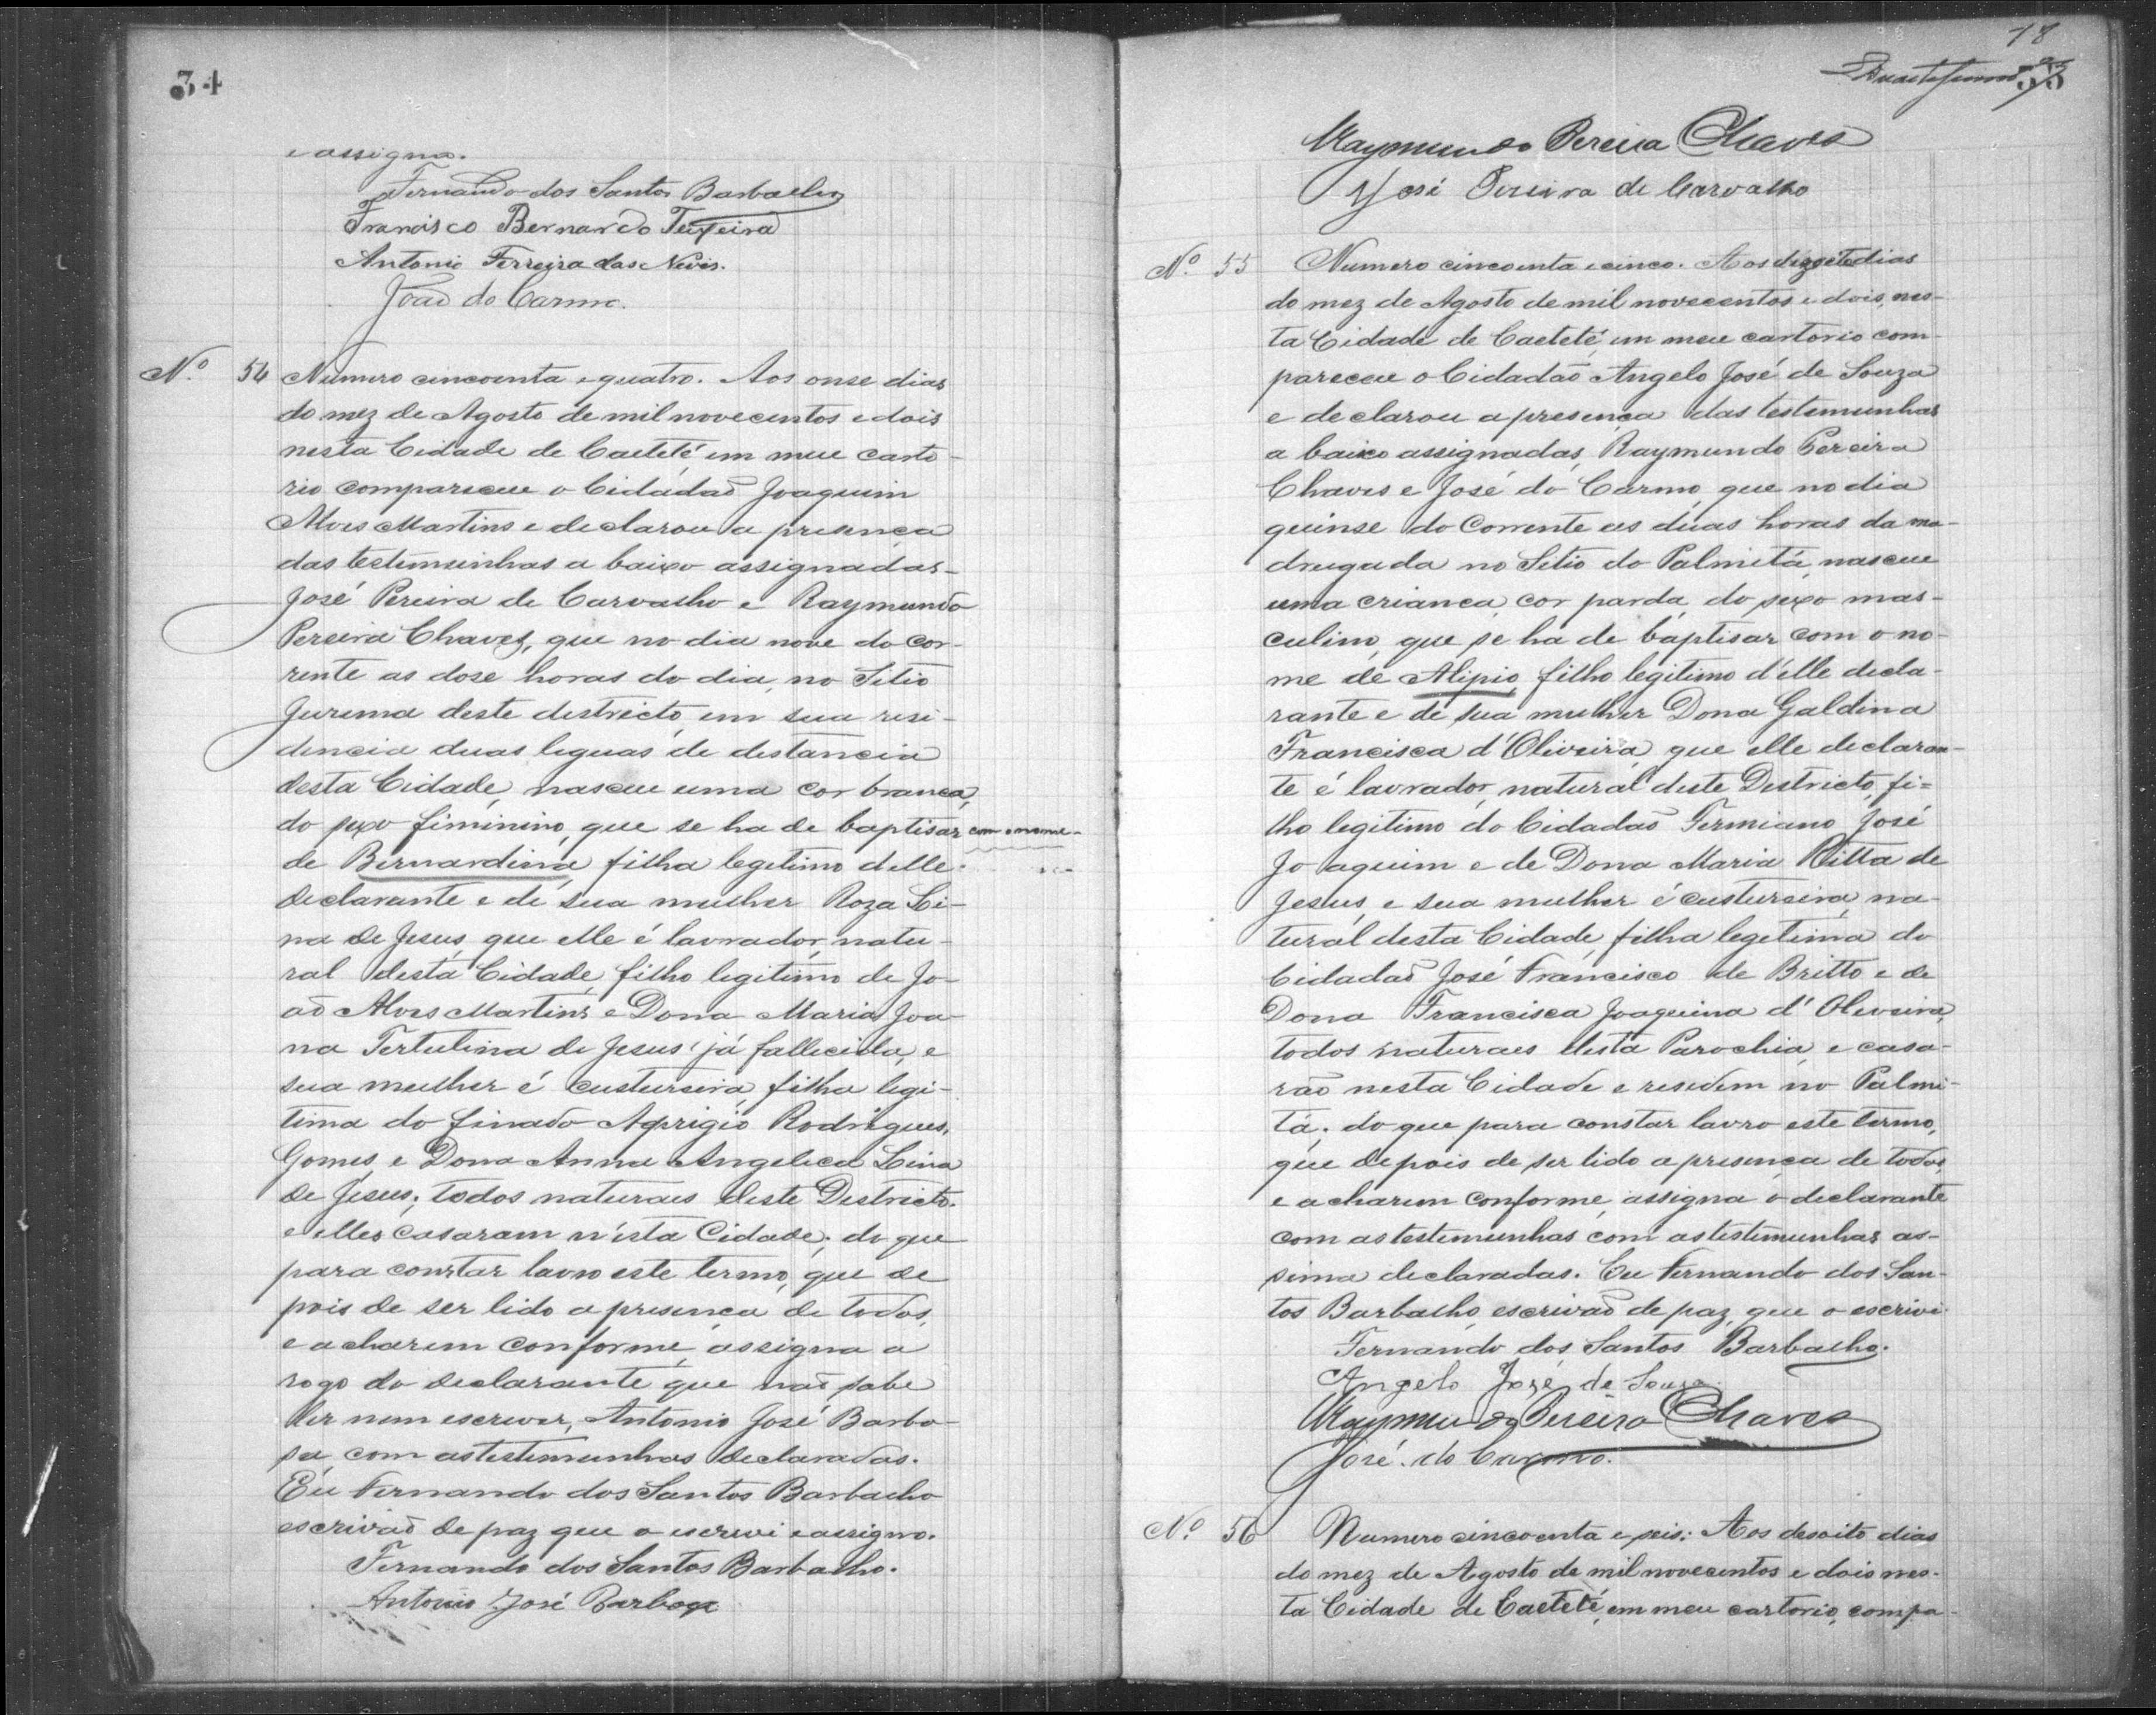 34
e assigno.
Fernando dos Santos Barbalho
Francisco Bernardo Teixeira
Antonio Ferreira das Neves.
João do Carmo.
Nº 54 Numero cincoenta e quatro. Aos onse dias
do mez de Agosto de mil novecentos e dois
nesta Cidade de Caeteté em meu carto-
rio compareceu o Cidadaõ Joaquim
Alves Martins e declarou a presença
das testemunhas a baixo assignadas-
José Pereira de Carvalho e Raymundo
Pereira Chaves, que no dia nove do cor-
rente as dose horas do dia, no Sitio
Jurema deste destricto, em sua resi-
dencia duas leguas de distancia
desta Cidade, nasceu uma cor branca,
do sexo fiminino, que se ha de baptisar com o nome-
de Bernardina, filha legitimo delle
declarante e de sua mulher Roza Li-
na de Jesus, que elle é lavrador, natu-
ral desta Cidade, filho legitimo de Jo-
aõ Alves Martins e Dona Maria Joa-
na Tertulina de Jesus já fallecida, e
sua mulher é custureira, filha legi-
tima do finado Aprigio Rodrigues,
Gomes, e Dona Anna Angelica Lina
de Jesus; todos naturaes deste Destricto.
e elles casaram n'esta Cidade; do que
para constar lavro este termo, que de
pois de ser lido a presença de todos,
e acharem conforme, assigna a
rogo do declarante que naõ sabe
ler nem escrever, Antonio José Barbo-
sa, com as testemunhas declaradas.
Eu Fernando dos Santos Barbalho
escrivaõ de paz que o escrevi e assigno.
Fernando dos Santos Barbalho.
Antonio José Barboza
18
35
Raymundo Pereira Chaves
José Pereira de Carvalho
Nº 55 Numero cincoenta e cinco. Aos dezoito dias
do mez de Agosto de mil novecentos e dois, nes-
ta Cidade de Caeteté, em meu cartorio com-
pareceu o Cidadaõ Angelo José de Souza
e declarou a presença das testemunhas
a baixo assignadas, Raymundo Pereira
Chaves e José do Carmo, que no dia
quinse do Corrente as duas horas da ma-
drugada no Sitio do Palmitá, nasceu
uma criança, cor parda, do sexo mas-
culino, que se ha de baptisar com o no-
me de Alipio, filho legitimo d'elle decla-
rante e de sua mulher Dona Galdina
Francisca d'Oliveira, que elle declaran-
te é lavrador, natural deste Destricto, fi=
lho legitimo do Cidadaõ Fermiano José
Joaquim e de Dona Maria Ritta de
Jesus, e sua mulher é custureira, na-
tural desta Cidade, filha legetima do
Cidadaõ José Francisco de Britto e de
Dona Francisca Joaquina d'Oliveira,
todos naturaes desta Parochia, e casa-
raõ nesta Cidade e residem no Palmi-
tá; do que para constar lavro este termo,
que depois de ser lido a presença de todos,
e acharem conforme, assigna o declarante
com as testemunhas com as testemunhas as-
sima declaradas. Eu Fernando dos San-
tos Barbalho, escrivaõ de paz, que o escrivi.
Fernando dos Santos Barbalho.
Angelo José de Souza.
Raymundo Pereira Chaves
José do Carmo.
Nº 56 Numero cincoenta e seis: Aos desoito dias
do mez de Agosto de mil novecentos e dois nes-
ta Cidade de Caeteté, em meu cartorio, compa-